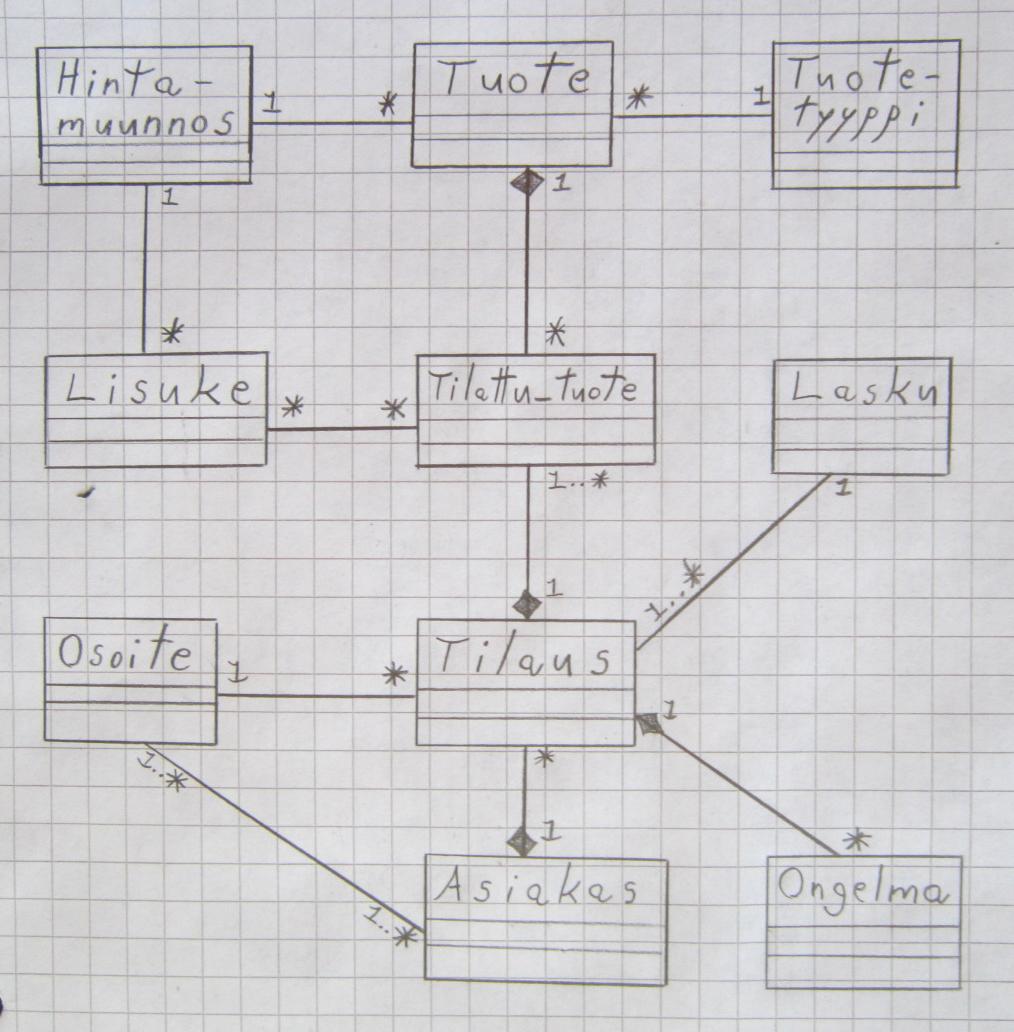 Hinta-
muunnos
1
*
Tuote
*
1
Tuote-
tyyppi
1
1
*
*
Lisuke
*
*
Tilattu_tuote
Lasku
1..*
1
1
1...*
Osoite
1
*
Tilaus
1
1..*
*
1
*
1..*
Asiakas
Ongelma